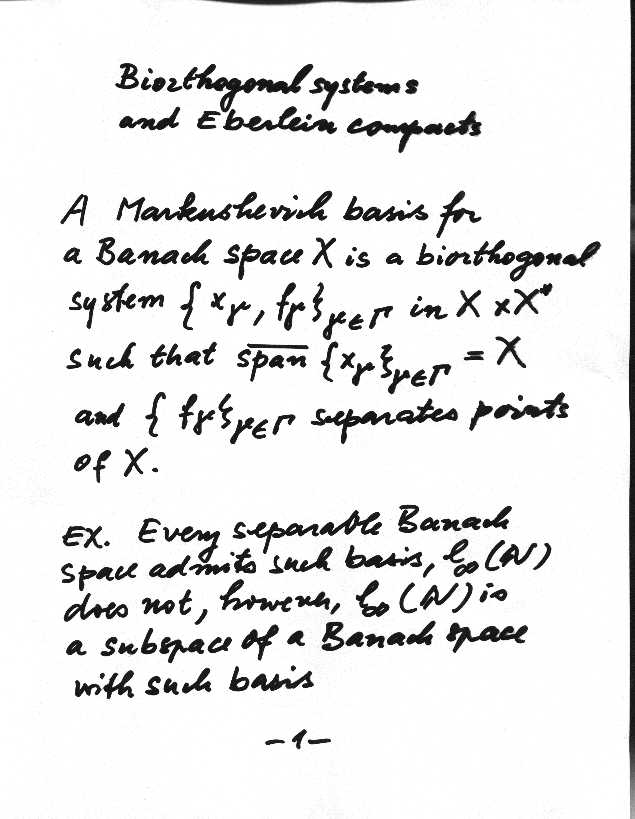 Biorthogonal systems
and Eberlein compacts
A Markushevich basis for
a Banach space X is a biorthogonal
system {xᵧ, fᵧ}ᵧ∈Γ in X × X*
such that s̅p̅a̅n̅ {xᵧ}ᵧ∈Γ = X
and {fᵧ}ᵧ∈Γ separates points
of X.
EX. Every separable Banach
space admits such basis, ℓ∞(N)
does not, however, ℓ∞(N) is
a subspace of a Banach space
with such basis
-1-